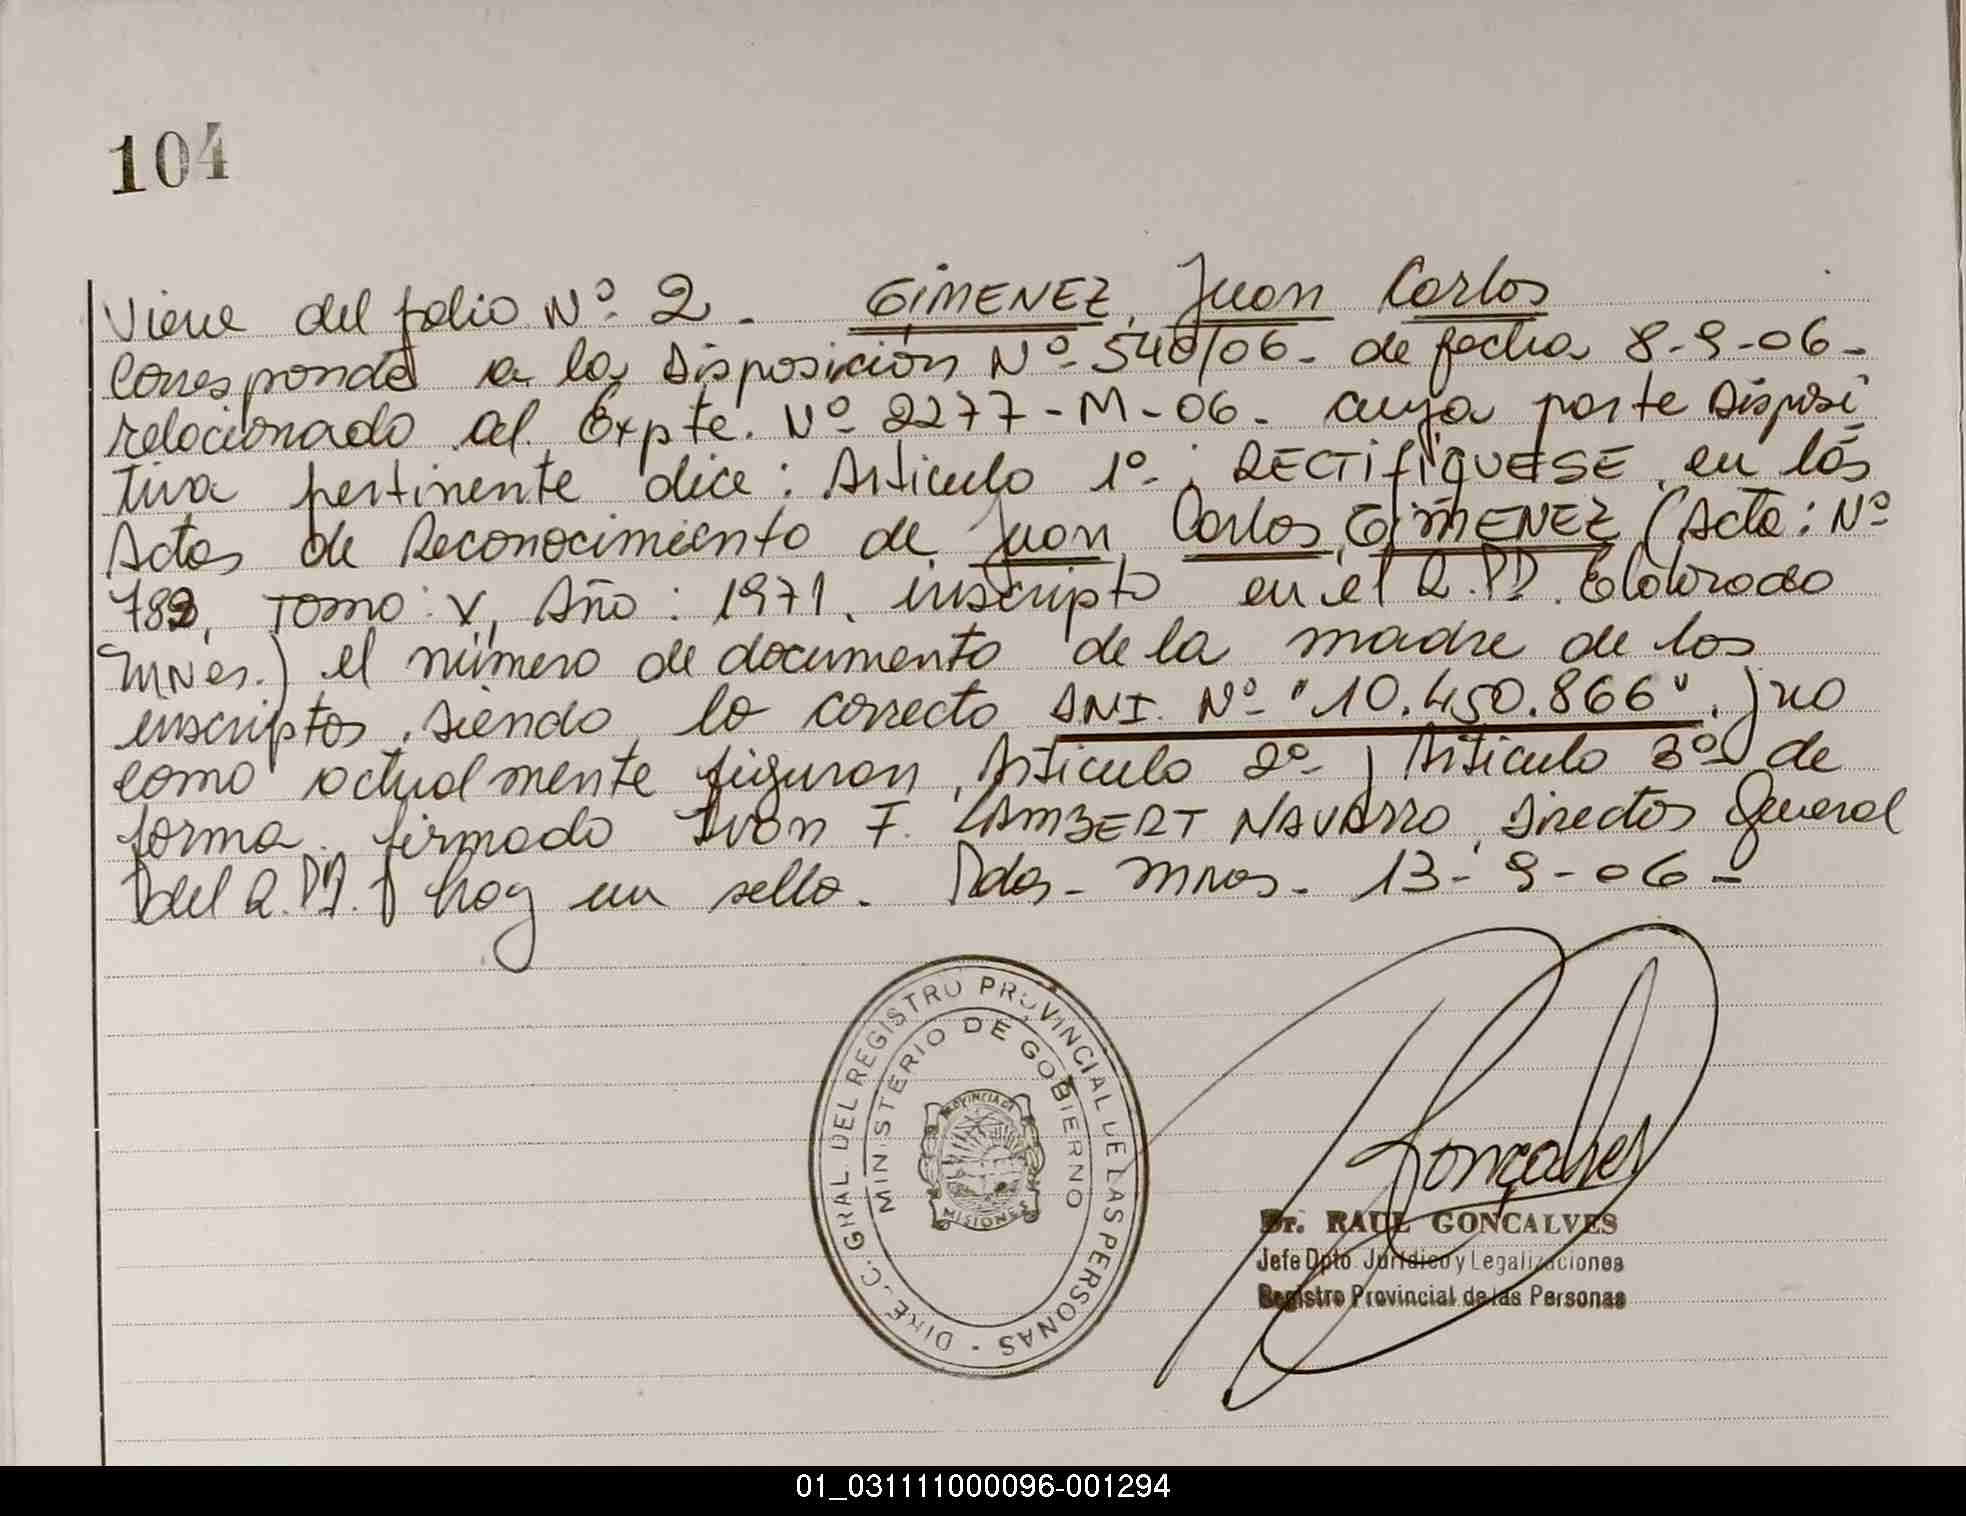 104
Viene del folio Nº 2. GIMENEZ, Juan Carlos
Corresponde a la Disposición Nº 540/06 - de fecha 8-9-06 -
relacionado al Expte. Nº 2277-M-06 - cuya parte disposi
tiva pertinente dice: Artículo 1º: RECTIFIQUESE, en las
Actas de Reconocimiento de Juan Carlos GIMENEZ (Acta: Nº
789, Tomo: V, Año: 1971, inscripto en el R.P.P. Eldorado
Mnes.) el número de documento de la madre de los
inscriptos, siendo lo correcto DNI. Nº "10.450.866", y no
como actualmente figuran, Artículo 2º y Artículo 3º de
forma. firmado Ivan F. LAMBERT NAVARRO, Director General
del R.P.P. hay un sello. Pdas - Mnes - 13-9-06 -
DIREC. GRAL. DEL REGISTRO PROVINCIAL DE LAS PERSONAS -
MINISTERIO DE GOBIERNO
PROVINCIA DE
MISIONES
Gonçalves
Dr. RAUL GONCALVES
Jefe Dpto. Jurídico y Legalizaciones
Registro Provincial de las Personas
01_031111000096-001294